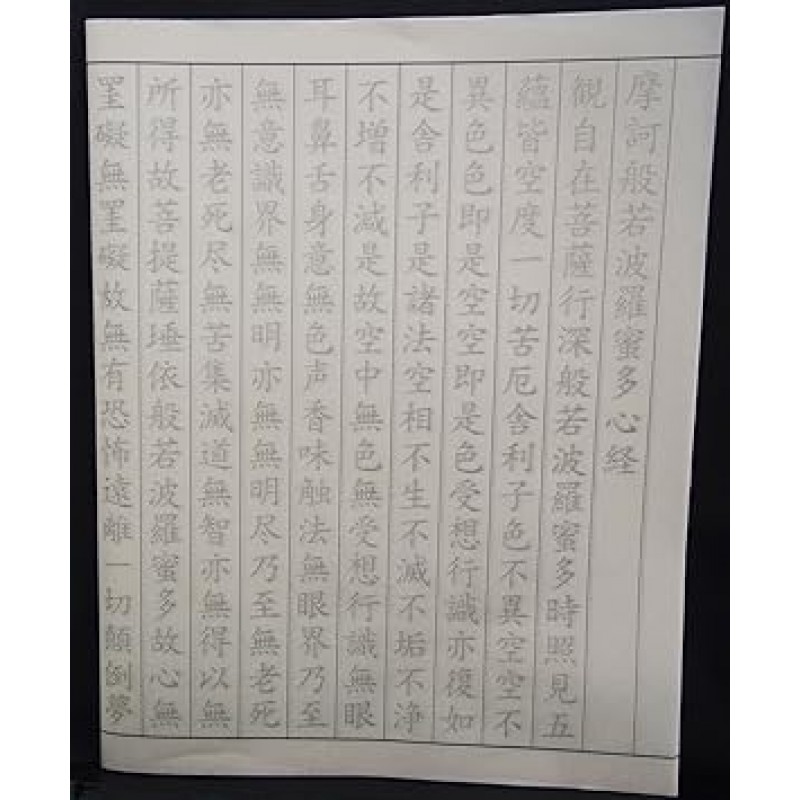 摩訶般若波羅蜜多心経
観自在菩薩行深般若波羅蜜多時照見五
蘊皆空度一切苦厄舎利子色不異空空不
異色色即是空空即是色受想行識亦復如
是舎利子是諸法空相不生不滅不垢不浄
不増不減是故空中無色無受想行識無眼
耳鼻舌身意無色声香味触法無眼界乃至
無意識界無無明亦無無明尽乃至無老死
亦無老死尽無苦集滅道無智亦無得以無
所得故菩提薩埵依般若波羅蜜多故心無
罣礙無罣礙故無有恐怖遠離一切顛倒夢